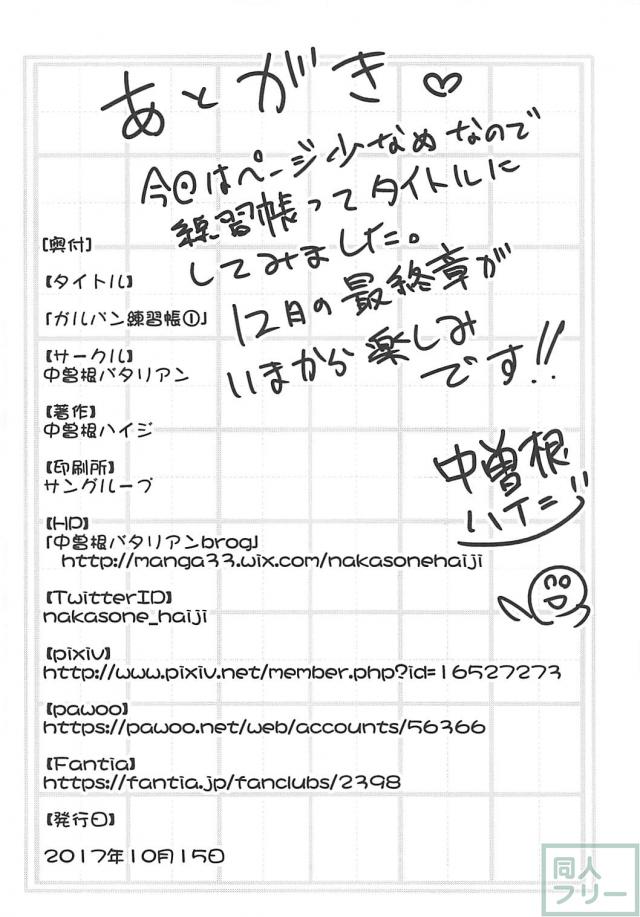 あとがき♡
今回はページ少なめなので
練習帳ってタイトルに
してみました。
12月の最終章が
いまから楽しみ
です!!
中曽根
ハイジ
【奥付】
【タイトル】
「ガルパン練習帳①」
【サークル】
中曽根バタリアン
【著作】
中曽根ハイジ
【印刷所】
サングループ
【HP】
「中曽根バタリアンbrog」
http://manga33.wix.com/nakasonehaiji
【TwitterID】
nakasone_haiji
【pixiv】
http://www.pixiv.net/member.php?id=16527273
【pawoo】
https://pawoo.net/web/accounts/56366
【Fantia】
https://fantia.jp/fanclubs/2398
【発行日】
2017年10月15日
同人
フリー